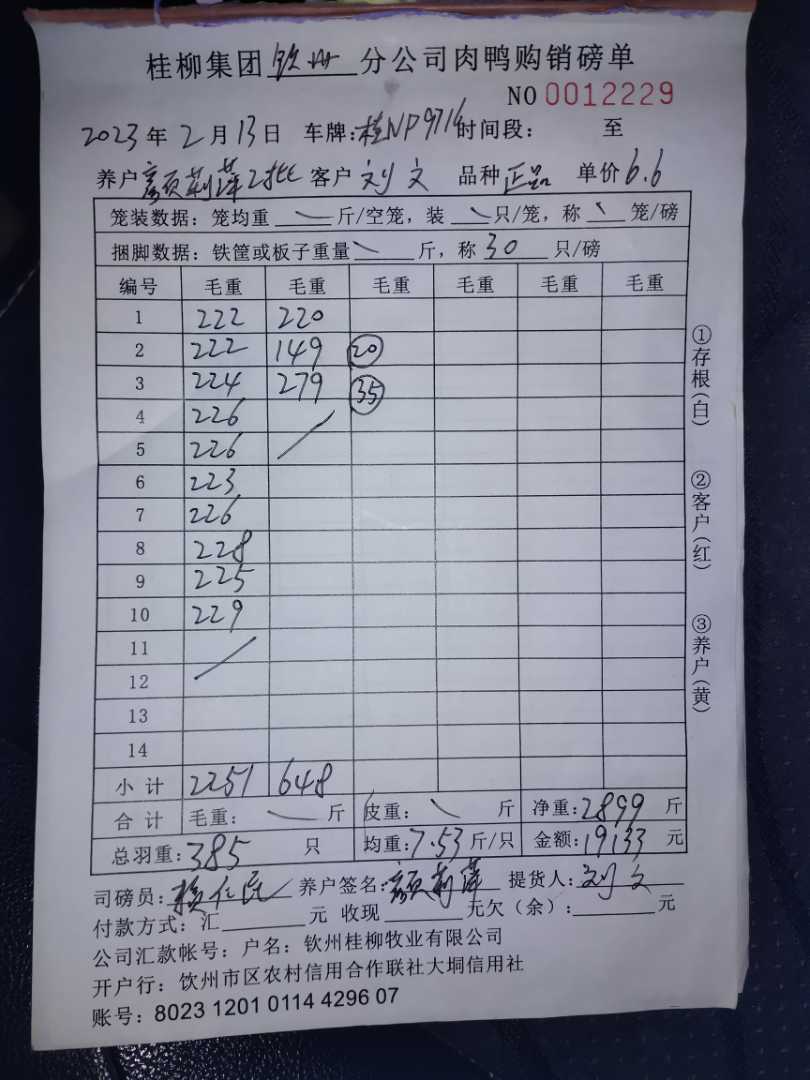 桂柳集团 钦州 分公司肉鸭购销磅单
NO 0012229
2023年2月13日 车牌:桂NP9714 时间段: 至
养户 颜莉萍2批 客户 刘文 品种 正品 单价6.6
笼装数据:笼均重 斤/空笼,装 只/笼,称 笼/磅
捆脚数据:铁筐或板子重量 斤,称 30 只/磅
编号 毛重 毛重 毛重 毛重 毛重 毛重
1 222 220
2 222 149 20
3 224 279 35
4 226
5 226
6 223
7 226
8 228
9 225
10 229
11
12
13
14
小计 2251 648
合计 毛重: 斤 皮重: 斤 净重:2899 斤
总羽重:385 只 均重:7.53斤/只 金额:19133 元
司磅员: 养户签名:颜莉萍 提货人:刘文
付款方式:汇 元 收现 元欠(余): 元
公司汇款帐号:户名:钦州桂柳牧业有限公司
开户行:钦州市区农村信用合作联社大垌信用社
账号:8023 1201 0114 4296 07
①存根(白)
②客户(红)
③养户(黄)